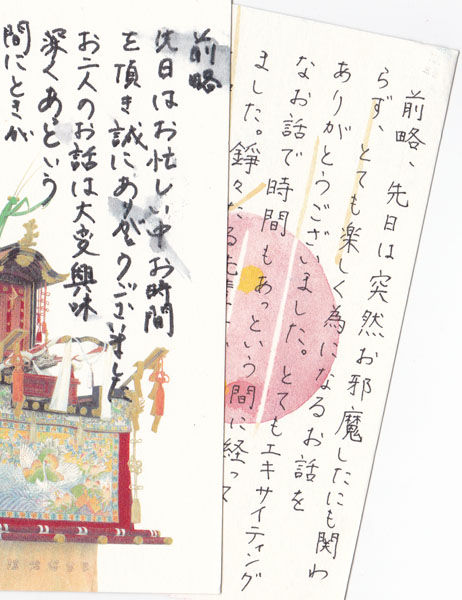 前略
先日はお忙しい中お時間
を頂き誠にありがとうございました
お二人のお話は大変興味
深くあっという
間にときが
前略、先日は突然お邪魔したにも関わ
らず、とても楽しく為になるお話を
ありがとうございました。とてもエキサイティング
なお話で時間もあっという間に経って
ました。錚々たる先輩